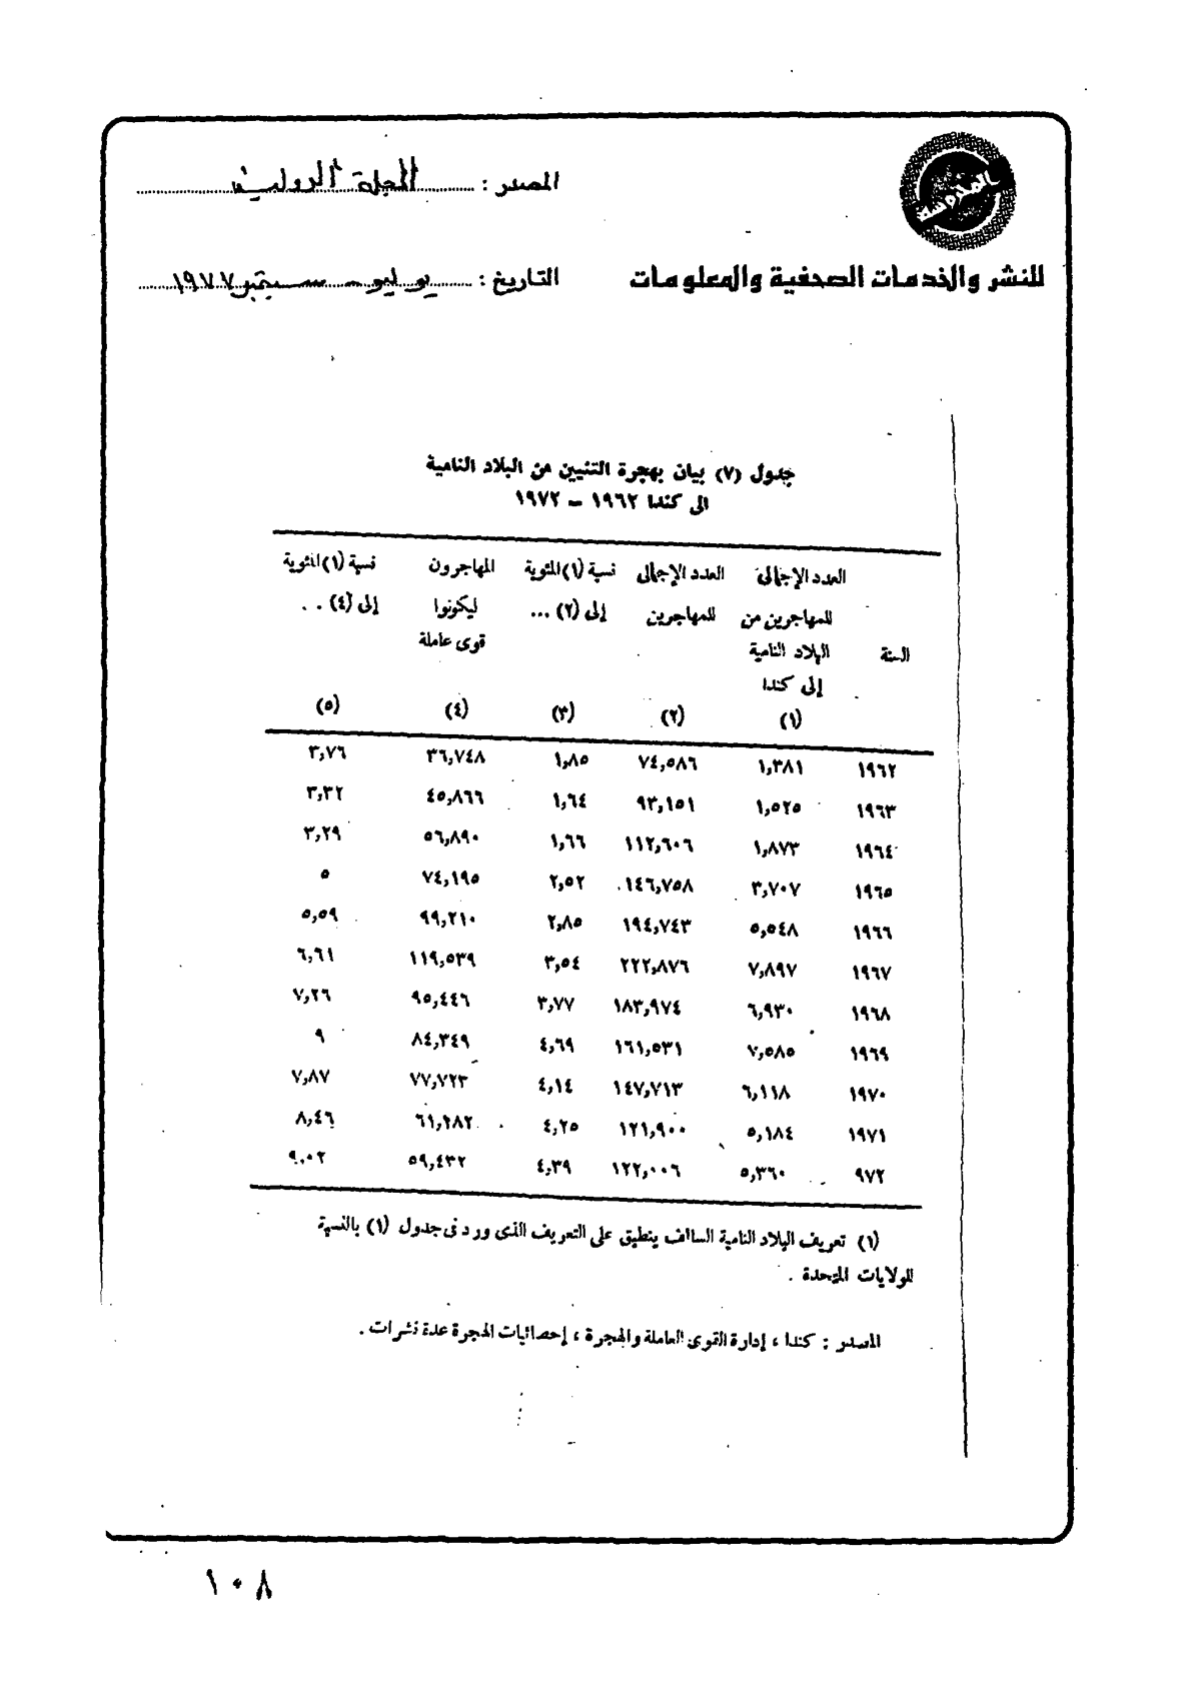 المحروسة
المصدر : المجلة الدولية
للنشر والخدمات الصحفية والمعلومات
التاريخ : يوليو - سبتمبر ١٩٧٧
جدول (٧) بيان بهجرة التنيين من البلاد النامية
الى كندا ١٩٦٢ – ١٩٧٢
العدد الإجمالى العدد الإجمالى نسبة (١) المئوية المهاجرون نسبة (١) المئوية
للمهاجرين من للمهاجرين إلى (٢) ... ليكونوا إلى (٤) . .
السنة البلاد النامية قوى عاملة
إلى كندا
(١) (٢) (٣) (٤) (٥)
١٩٦٢ ١,٣٨١ ٧٤,٥٨٦ ١,٨٥ ٣٦,٧٤٨ ٣,٧٦
١٩٦٣ ١,٥٢٥ ٩٣,١٥١ ١,٦٤ ٤٥,٨٦٦ ٣,٣٢
١٩٦٤ ١,٨٧٣ ١١٢,٦٠٦ ١,٦٦ ٥٦,٨٩٠ ٣,٢٩
١٩٦٥ ٣,٧٠٧ ١٤٦,٧٥٨ ٢,٥٢ ٧٤,١٩٥ ٥
١٩٦٦ ٥,٥٤٨ ١٩٤,٧٤٣ ٢,٨٥ ٩٩,٢١٠ ٥,٥٩
١٩٦٧ ٧,٨٩٧ ٢٢٢,٨٧٦ ٣,٥٤ ١١٩,٥٣٩ ٦,٦١
١٩٦٨ ٦,٩٣٠ ١٨٣,٩٧٤ ٣,٧٧ ٩٥,٤٤٦ ٧,٢٦
١٩٦٩ ٧,٥٨٥ ١٦١,٥٣١ ٤,٦٩ ٨٤,٣٤٩ ٩
١٩٧٠ ٦,١١٨ ١٤٧,٧١٣ ٤,١٤ ٧٧,٧٢٣ ٧,٨٧
١٩٧١ ٥,١٨٤ ١٢١,٩٠٠ ٤,٢٥ ٦١,٢٨٢ ٨,٤٦
٩٧٢ ٥,٣٦٠ ١٢٢,٠٠٦ ٤,٣٩ ٥٩,٤٣٢ ٩,٠٢
(١) تعريف البلاد النامية السالف ينطبق على التعريف الذى ورد فى جدول (١) بالنسبة
للولايات المتحدة .
المصدر : كندا ، إدارة القوى العاملة والهجرة ، إحصائيات الهجرة عدة نشرات .
١٠٨